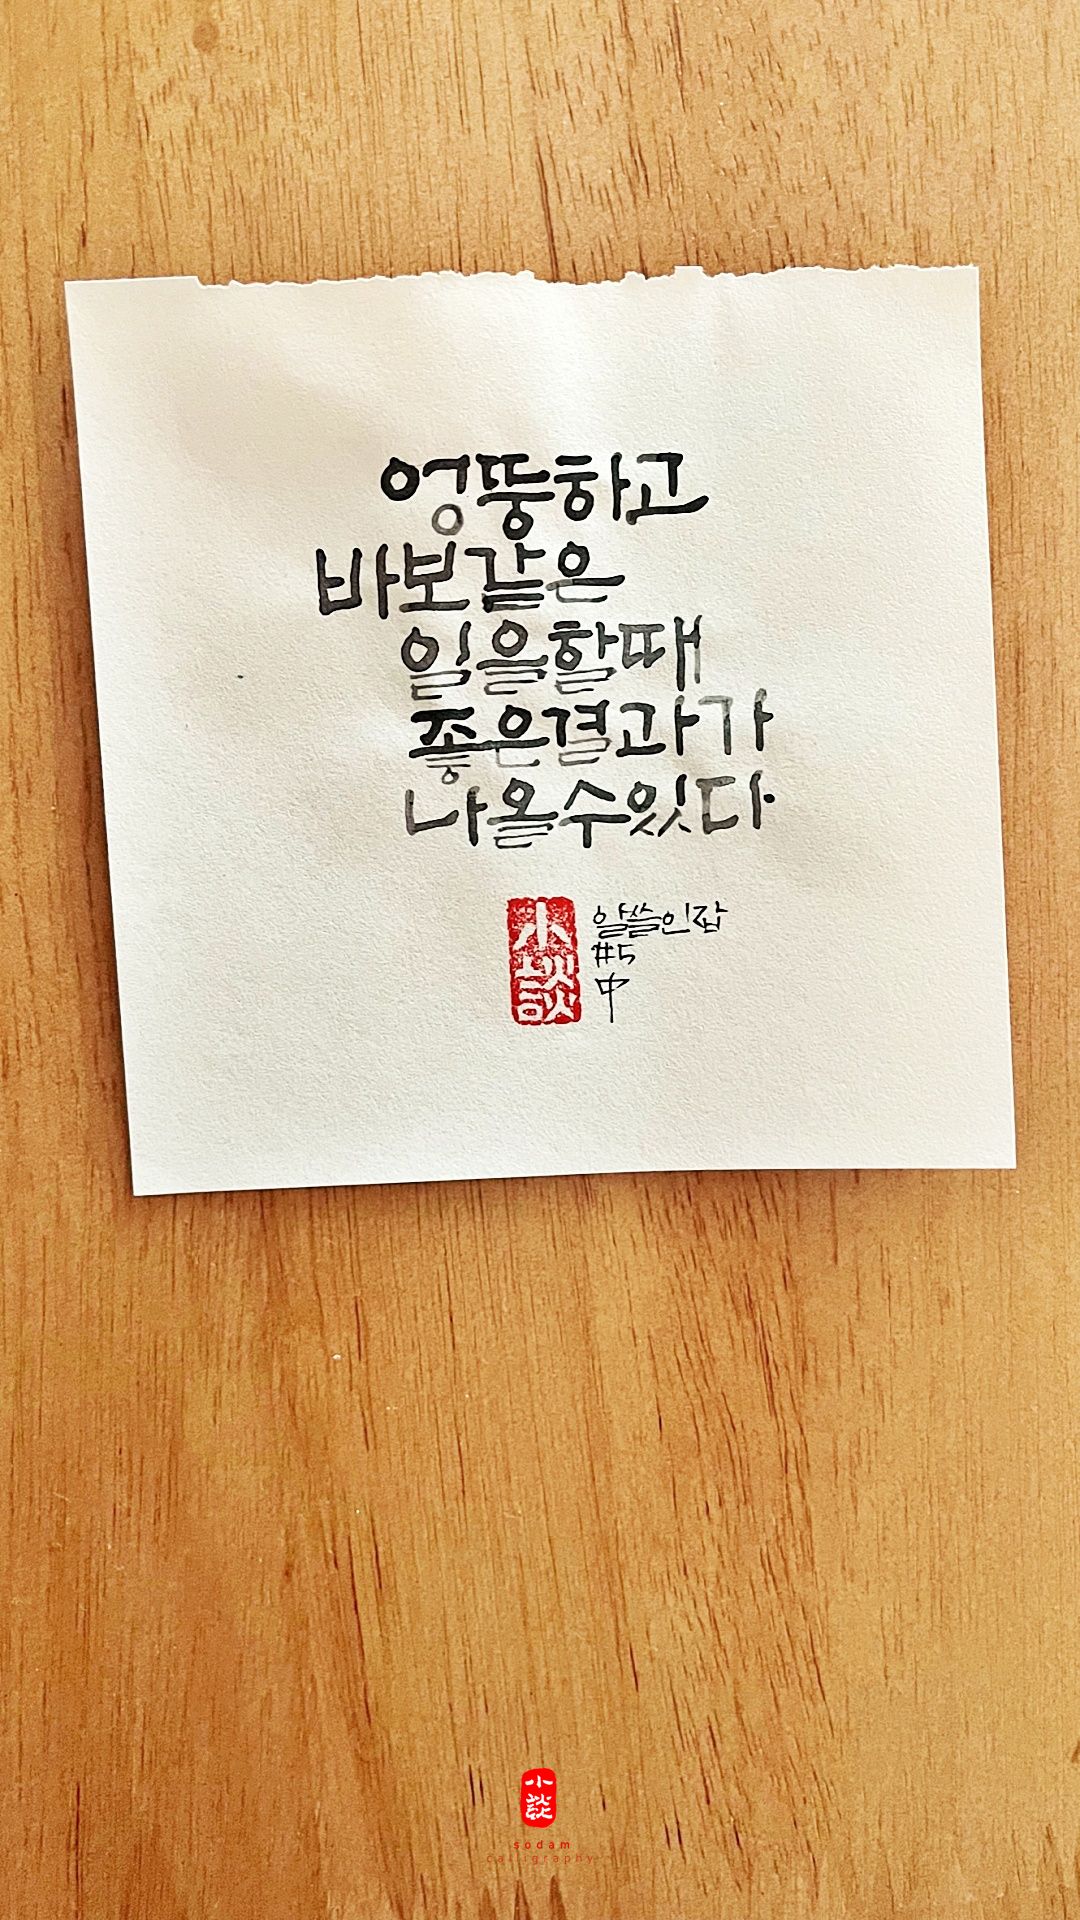 엉뚱하고
바보같은
일을할때
좋은결과가
나올수있다
小談
알쓸인잡
#5
中
小談
sodam
calligraphy